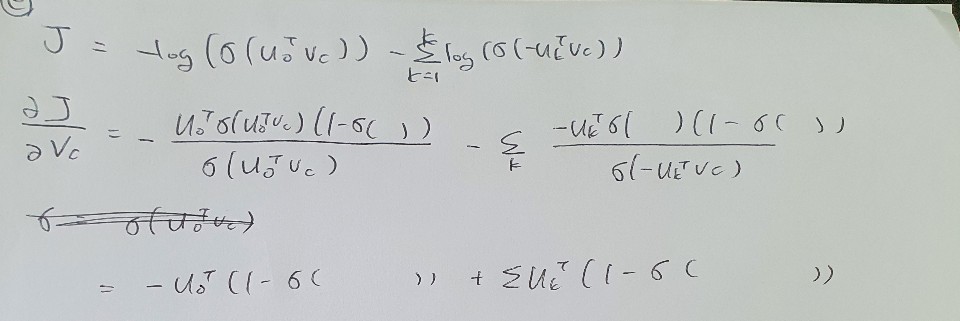 (c)
J = -log(σ(u_o^T v_c)) - Σ_{k=1}^{k} log(σ(-u_k^T v_c))
∂J/∂V_c = - (u_o^T σ(u_o^T v_c)(1-σ( )))/(σ(u_o^T v_c)) - Σ_k (-u_k^T σ( )(1-σ( )))/(σ(-u_k^T v_c))
= -u_o^T (1-σ( )) + Σ u_k^T (1-σ( ))